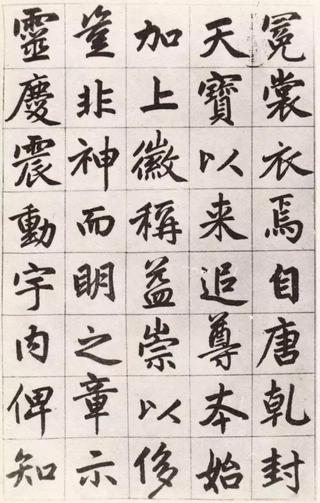 冕裳衣焉自唐乾封
天寳以来追尊夲始
加上徽稱益崇以侈
豈非神而明之章示
靈慶震動宇内俾知